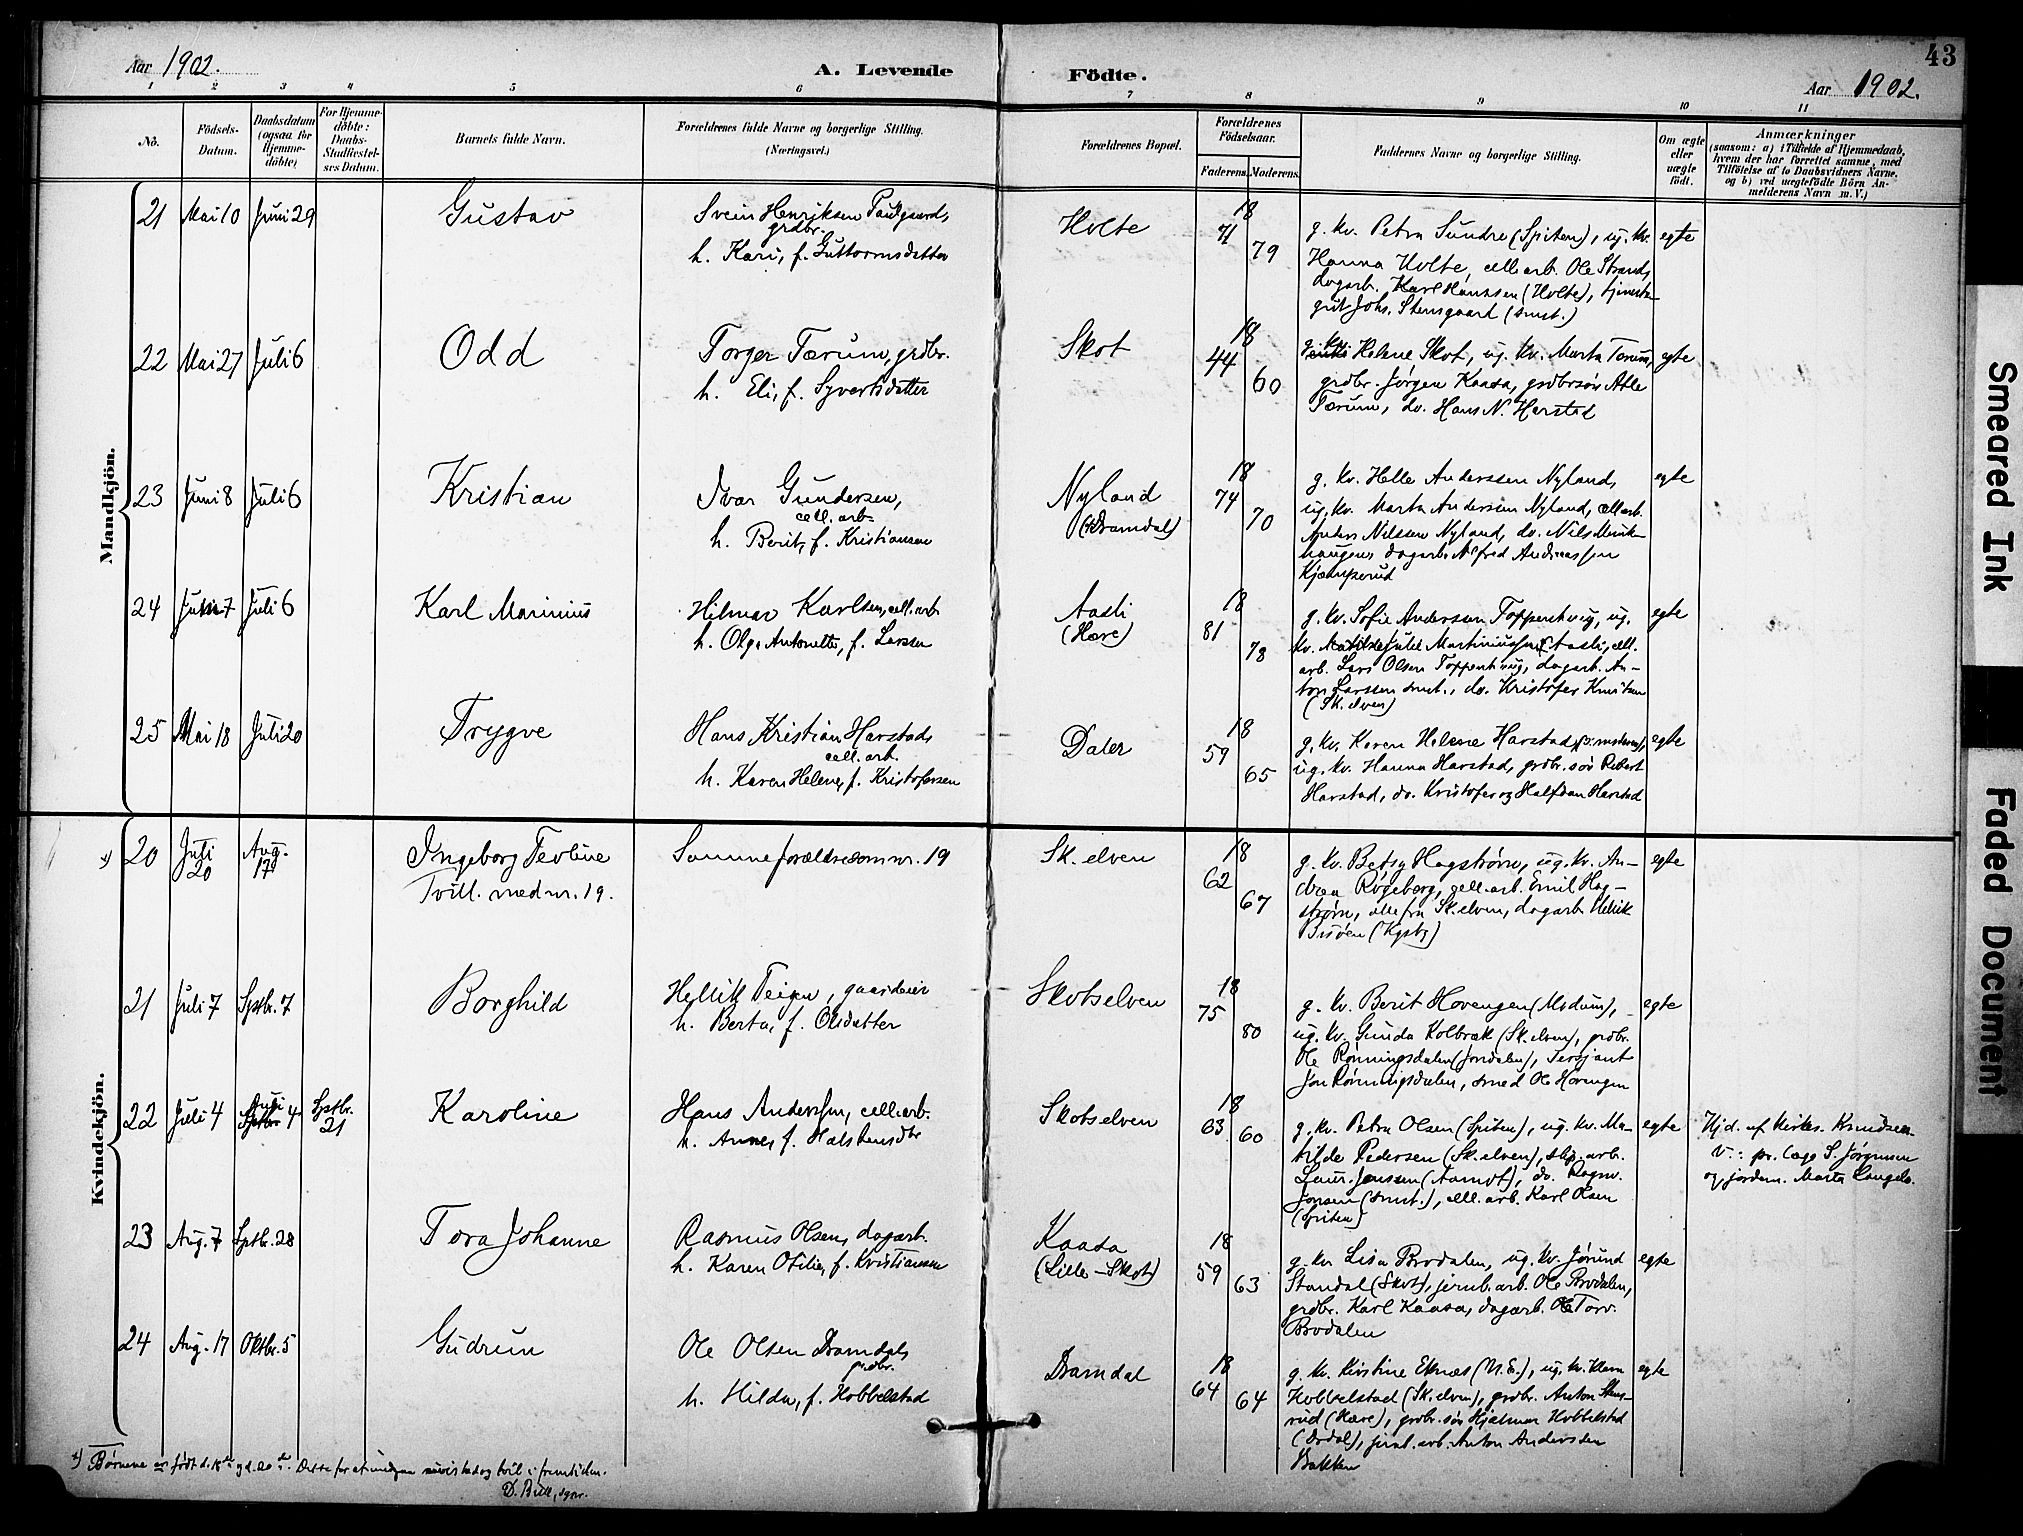 43
Aar 1902.
A. Levende
Födte.
Aar 1902.
1 2 3 4 5 6 7 8 9 10 11
No.
Födsels-
Datum.
Daabsdatum
(ogsaa for
Hjemme-
döbte)
For Hjemme-
döbte:
Daabs-
Stadfæstel-
ses Datum.
Barnets fulde Navn.
Forældrenes fulde Navne og borgerlige Stilling.
(Næringsvei.)
Forældrenes Bopæl.
Forældrenes
Födselsaar.
Faderens. Moderens.
Faddernes Navne og borgerlige Stilling.
Om ægte
eller
uægte
födt.
Anmærkninger
(saasom: a) i Tilfælde af Hjemmedaab,
hvem der har forrettet samme, med
Tilföielse af to Daabsvidners Navne,
og b) ved uægtefödte Börn An-
melderens Navn m. V.)
Mandkjön.
21 Mai 10 Juni 29 Gustav
Svein Henriksen Paulsgaard,
grdbr.
h. Kari, f. Guttormsdatter
Holte
18
71
79
g. kv. Petra Sundre (Spiten), ug. kv.
Hanna Holte, cell. arb. Ole Strand,
dagarb. Karl Hanssen (Holte), tjeneste-
gut Johs. Stensgaard (smst.)
egte
22 Mai 27 Juli 6 Odd
Torger Tærum, grdbr.
h. Eli, f. Syvertsdatter
Skot
18
44
60
Helene Skot, ug. kv. Marta Tærum,
grdbr. Jørgen Kaasa, grdbrsøn Atle
Tærum, do. Hans N. Harstad
egte
23 Juni 8 Juli 6 Kristian
Ivar Gundersen,
cell. arb.
h. Berit, f. Kristiansen
Nyland
(Dramdal)
18
74
70
g. kv. Helle Anderssen Nyland,
ug. kv. Marta Andersen Nyland, cell. arb.
Anders Nilsen Nyland, do. Nils Munk-
haugen, dagarb. Alfred Andreassen
Kjæmperud
egte
24 Juni 7 Juli 6 Karl Marinius
Hilmar Karlsen, cell. arb.
h. Olga Antonette, f. Larsen
Aasli
(Hære)
18
81
78
g. kv. Sofie Andersen Toppenhaug, ug.
kv. Matilde Julie Martiniussen Aasli, cell.
arb. Lars Olsen Toppenhaug, dagarb. An-
ton Larssen smst., do. Kristofer Knutsen
(Sk. elven)
egte
25 Mai 18 Juli 20 Trygve
Hans Kristian Harstad,
cell. arb.
h. Karen Helene, f. Kristofersen
Daler
18
59
65
g. kv. Karen Helene Harstad,
ug. kv. Hanna Harstad, grdbr. søn Robert
Harstad, do. Kristofer og Halfdan Harstad
egte
Kvindekjön.
x) 20 Juli 20 Aug. 17 Ingeborg Tevline
Tvill. med nr. 19.
Samme forældre som nr. 19
Sk. elven
18
62
67
g. kv. Betsy Hagstrøm, ug. kv. An-
drea Røgeberg, cell. arb. Emil Hag-
strøm, alle fra Sk. elven, dagarb. Henrik
Bråten (Kgsbg)
egte
21 Juli 7 Sptbr. 7 Borghild
Hellik Teigen, gaardeier
h. Berta, f. Olsdatter
Skotselven
18
75
80
g. kv. Berit Hovengen (Modum),
ug. kv. Gunda Kolbræk (Sk. elven), grdbr.
Ole Rønningsdalen (Jondalen), Sersjant
Jon Rønningsdalen, smed Ole Hovengen
egte
22 Juli 4 Juli 4 Sptbr. 21 Karoline
Hans Andersen, cell. arb.
h. Anne, f. Halstensdtr
Skotselven
18
63 60
g. kv. Petra Olsen (Spiten), ug. kv. Ma-
tilde Pedersen (Sk. elven), slip. arb.
Laur. Jenssen (Aamot), do. Ragnv.
Jonsen (smst.), cell. arb. Karl Olsen
(Spiten)
egte
Hjd. af kirkes. Knudsen.
V.: pr. læge S. Jørgensen
og jordem. Marta Langelo.
23 Aug. 7 Sptbr. 28 Tora Johanne
Rasmus Olsen, dagarb.
h. Karen Otilie, f. Kristiansen
Kaasa
(Lille-Skot)
18
59
63
g. kv. Lisa Brodalen, ug. kv. Jørund
Standal (Skot), jernb. arb. Ole Brodalen,
grdbr. Karl Kaasa, dagarb. Ole Torv.
Brodalen
egte
24 Aug. 17 Oktbr. 5 Gudrun
Ole Olsen Dramdal,
grdbr.
h. Hilda, f. Hobbelstad
Dramdal
18
64
64
g. kv. Kirstine Eknæs (N. E.), ug. kv. Klara
Hobbelstad (Sk. elven), grdbr. Anton Stens-
rud (Hære), grdbr. søn Hjalmar Hobbelstad
(Ørdal), jernb. arb. Anton Andersen
Bakken
egte
x) Børnene er født d. 18de og d. 20de. Dette for at undgaa misvisende og tvil i fremtiden.
D. Bull, sgpr.
Smeared Ink
Faded Document